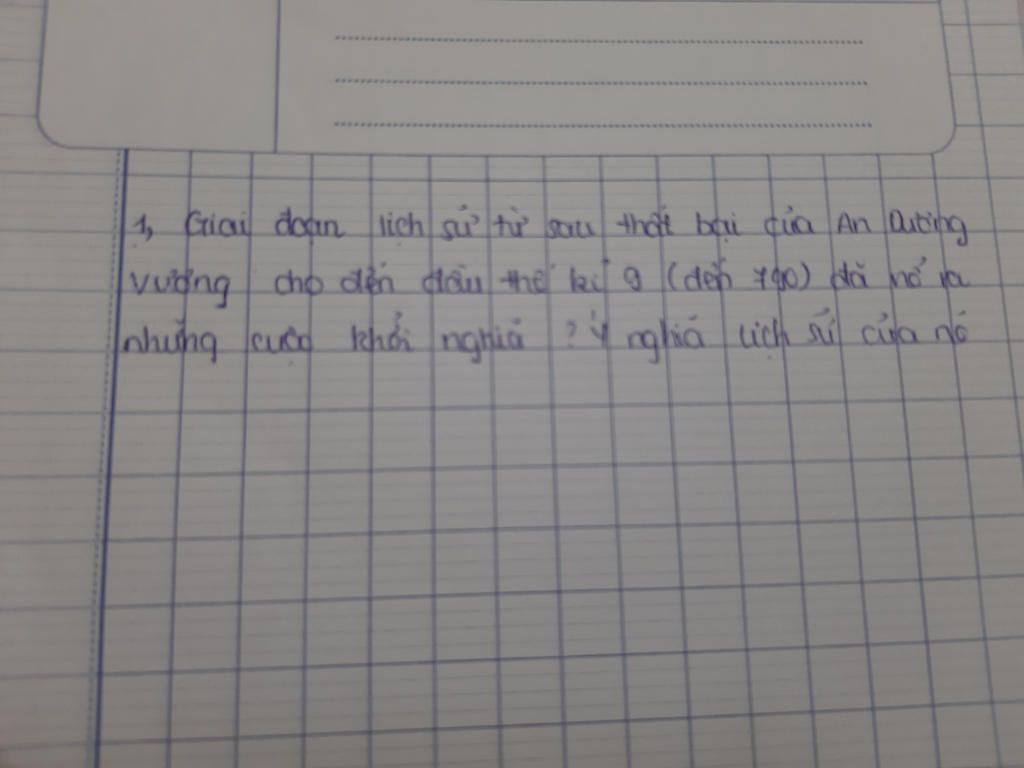 1, Giai đoạn lịch sử từ sau thất bại của An Dương
Vương cho đến đầu thế kỉ 9 (đến 790) đã nổ ra
những cuộc khởi nghĩa ? Ý nghĩa lịch sử của nó